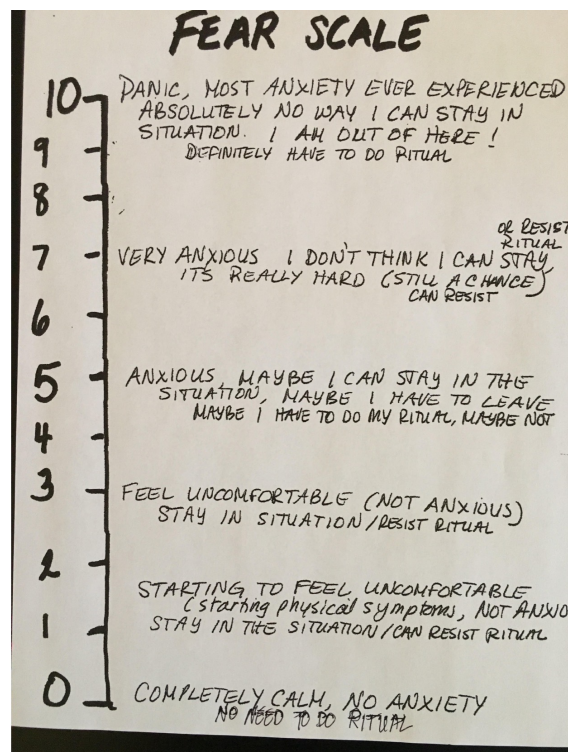 FEAR SCALE
10 PANIC, MOST ANXIETY EVER EXPERIENCED
ABSOLUTELY NO WAY I CAN STAY IN
SITUATION. I AM OUT OF HERE!
DEFINITELY HAVE TO DO RITUAL
9
8
OR RESIST
RITUAL
7 VERY ANXIOUS I DON'T THINK I CAN STAY
ITS REALLY HARD (STILL A CHANCE)
CAN RESIST
6
5 ANXIOUS, MAYBE I CAN STAY IN THE
SITUATION, MAYBE I HAVE TO LEAVE
MAYBE I HAVE TO DO MY RITUAL, MAYBE NOT
4
3 FEEL UNCOMFORTABLE (NOT ANXIOUS)
STAY IN SITUATION/RESIST RITUAL
2
STARTING TO FEEL UNCOMFORTABLE
(starting physical symptoms, NOT ANXIO
1 STAY IN THE SITUATION/CAN RESIST RITUAL
0 COMPLETELY CALM, NO ANXIETY
NO NEED TO DO RITUAL